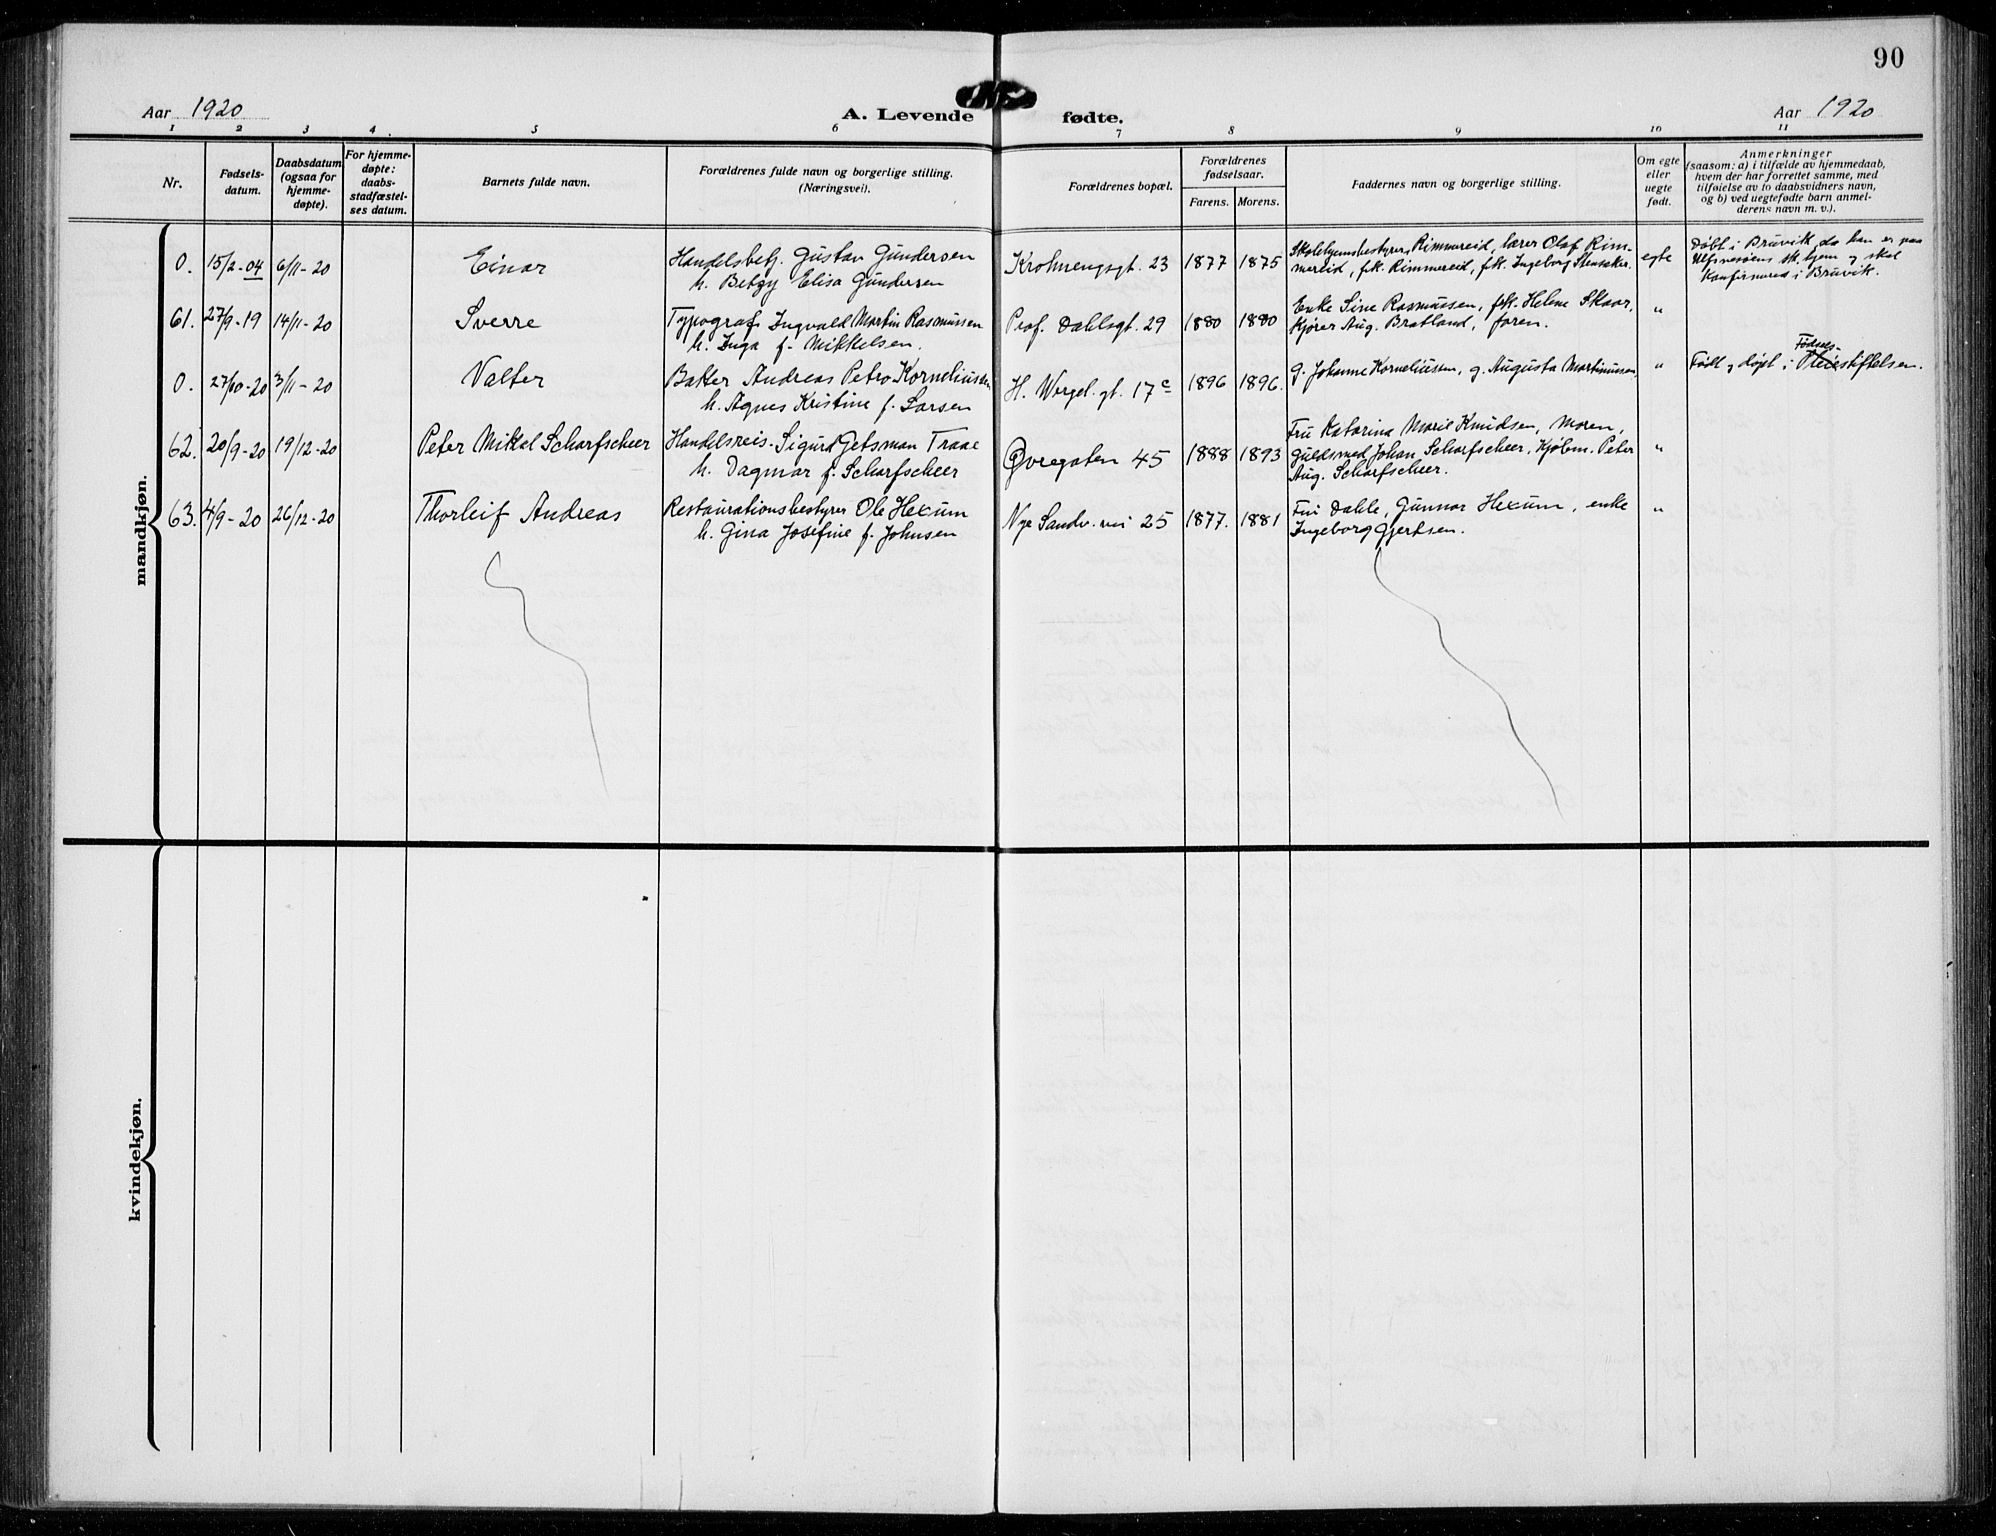 90
Aar 1920
A. Levende fødte.
Aar 1920
1 2 3 4 5 6 7 8 9 10 11
Nr.
Fødsels-
datum.
Daabsdatum
(ogsaa for
hjemme-
døpte).
For hjemme-
døpte:
daabs-
stadfæstel-
ses datum.
Barnets fulde navn.
Forældrenes fulde navn og borgerlige stilling.
(Næringsvei).
Forældrenes bopæl.
Forældrenes
fødselsaar.
Farens. Morens.
Faddernes navn og borgerlige stilling.
Om egte
eller
uegte
født.
Anmerkninger
(saasom: a) i tilfælde av hjemmedaab,
hvem der har forrettet samme, med
tilføielse av to daabsvidners navn,
og b) ved uegtefødte barn anmel-
derens navn m. v.).
mandkjøn.
0. 15/2-04 6/11-20 Einar
Handelsbetj. Gustav Gundersen
h. Betzy Elisa Gundersen
Krohnengsgt. 23 1877 1875
Skolehjemsbestyrer Rimmereid, lærer Olaf Rim-
mereid, frk. Rimmereid, frk. Ingeborg Stensaker.
egte
Døbt i Bruvik, da han er paa
Ulfsnesøens sk. hjem og skal
konfirmered i Bruvik.
61. 27/9-19 14/11-20 Sverre
Typograf Ingvald Martin Rasmussen
h. Inga f. Mikkelsen.
Prof. Dahlsgt. 29 1880 1880
Enke Sine Rasmussen, frk. Helene Skaar,
Kjører Aug. Bratland, faren.
"
0. 27/10-20 3/11-20 Valter
Bakter Andreas Petro Korneliussen
h. Agnes Kristine f. Larsen
H. Wergel. gt. 17c 1896 1896.
g. Johanne Korneliussen, g. Augusta Martinussen,
"
Fødsels-
Født og døpt i Pleiestiftelsen.
62. 20/9-20 19/12-20 Peter Mikal Scharfscheer
Handelsreis. Sigurd Getsman Traae
h. Dagmar f. Scharfscheer
Øvregaten 45 1888 1893
Fru Katarina Marie Knudsen, Moren,
guldsmed Johan Scharfscheer, Kjøbm. Peter
Aug. Scharfscheer.
"
63. 4/9-20 26/12-20 Thorleif Andreas
Restaurationsbestyrer Ole Hexum
h. Gina Josefine f. Johnsen
Nye Sandv. vei 25 1877. 1881
Fru Dahle, Gunnar Hexum, enke
Ingeborg Gjertsen.
"
kvindekjøn.